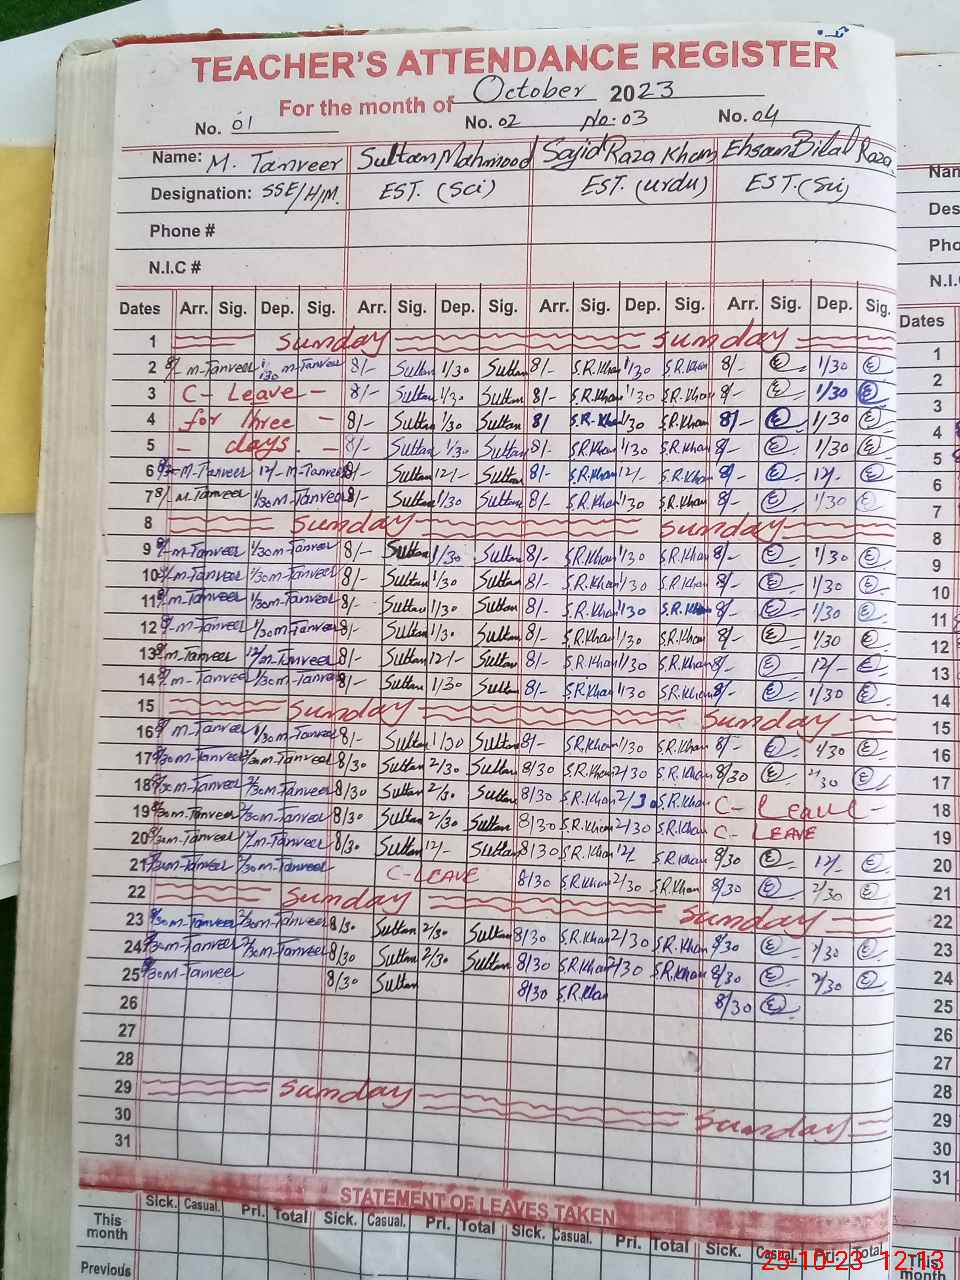 TEACHER'S ATTENDANCE REGISTER
For the month of October 2023
No. 01 No. 02 No. 03 No. 04
Name: M. Tanveer Sultan Mahmood Sajid Raza Khan Ehsan Bilal Raza
Designation: SSE/H/M. EST. (Sci) EST. (urdu) EST. (Sci)
Phone #
N.I.C #
Dates Arr. Sig. Dep. Sig. Arr. Sig. Dep. Sig. Arr. Sig. Dep. Sig. Arr. Sig. Dep. Sig.
1 Sunday Sunday
2 8/- M-Tanveer 1/30 M-Tanveer 8/- Sultan 1/30 Sultan 8/- S.R.Khan 1/30 S.R.Khan 8/- E 1/30 E
3 C- Leave - 8/- Sultan 1/30 Sultan 8/- S.R.Khan 1/30 S.R.Khan 8/- E 1/30 E
4 for three - 8/- Sultan 1/30 Sultan 8/ S.R.Khan 1/30 S.R.Khan 8/- E 1/30 E
5 - days. - 8/- Sultan 1/30 Sultan 8/- S.R.Khan 1/30 S.R.Khan 8/- E 1/30 E
6 8/- M-Tanveer 12/- M-Tanveer 8/- Sultan 12/- Sultan 8/- S.R.Khan 12/- S.R.Khan 8/- E 12/- E
7 8/ M.Tanveer 1/30 M-Tanveer 8/- Sultan 1/30 Sultan 8/- S.R.Khan 1/30 S.R.Khan 8/- E 1/30 E
8 Sunday Sunday
9 8/- M-Tanveer 1/30 M-Tanveer 8/- Sultan 1/30 Sultan 8/- S.R.Khan 1/30 S.R.Khan 8/- E 1/30 E
10 8/- M-Tanveer 1/30 M-Tanveer 8/- Sultan 1/30 Sultan 8/- S.R.Khan 1/30 S.R.Khan 8/- E 1/30 E
11 8/- M-Tanveer 1/30 M-Tanveer 8/- Sultan 1/30 Sultan 8/- S.R.Khan 1/30 S.R.Khan 8/- E 1/30 E
12 8/- M-Tanveer 1/30 M-Tanveer 8/- Sultan 1/30 Sultan 8/- S.R.Khan 1/30 S.R.Khan 8/- E 1/30 E
13 8/ M-Tanveer 12/ M-Tanveer 8/- Sultan 12/- Sultan 8/- S.R.Khan 1/30 S.R.Khan 8/- E 12/- E
14 8/- M-Tanveer 1/30 M-Tanveer 8/- Sultan 1/30 Sultan 8/- S.R.Khan 1/30 S.R.Khan 8/- E 1/30 E
15 Sunday Sunday
16 8/ M-Tanveer 1/30 M-Tanveer 8/- Sultan 1/30 Sultan 8/- S.R.Khan 1/30 S.R.Khan 8/- E 1/30 E
17 8/30 M-Tanveer 2/30 M-Tanveer 8/30 Sultan 2/30 Sultan 8/30 S.R.Khan 2/30 S.R.Khan 8/30 E 2/30 E
18 8/30 M-Tanveer 2/30 M-Tanveer 8/30 Sultan 2/30 Sultan 8/30 S.R.Khan 2/30 S.R.Khan C- Leave -
19 8/30 M-Tanveer 2/30 M-Tanveer 8/30 Sultan 2/30 Sultan 8/30 S.R.Khan 2/30 S.R.Khan C- LEAVE
20 8/30 M-Tanveer 12/ M-Tanveer 8/30 Sultan 12/- Sultan 8/30 S.R.Khan 12/ S.R.Khan 8/30 E 12/- E
21 8/30 M-Tanveer 2/30 M-Tanveer C-LEAVE 8/30 S.R.Khan 2/30 S.R.Khan 8/30 E 2/30 E
22 Sunday Sunday
23 8/30 M-Tanveer 2/30 M-Tanveer 8/30 Sultan 2/30 Sultan 8/30 S.R.Khan 2/30 S.R.Khan 8/30 E 2/30 E
24 8/30 M-Tanveer 2/30 M-Tanveer 8/30 Sultan 2/30 Sultan 8/30 S.R.Khan 2/30 S.R.Khan 8/30 E 2/30 E
25 8/30 M-Tanveer 8/30 Sultan 8/30 S.R.Khan 8/30 E
26
27
28
29 Sunday Sunday
30
31
STATEMENT OF LEAVES TAKEN
Sick. Casual. Pri. Total Sick. Casual. Pri. Total Sick. Casual. Pri. Total Sick. Casual. Pri. Total
This month
Previous
Dates
1
2
3
4
5
6
7
8
9
10
11
12
13
14
15
16
17
18
19
20
21
22
23
24
25
26
27
28
29
30
31
This month
25-10-23 12:13